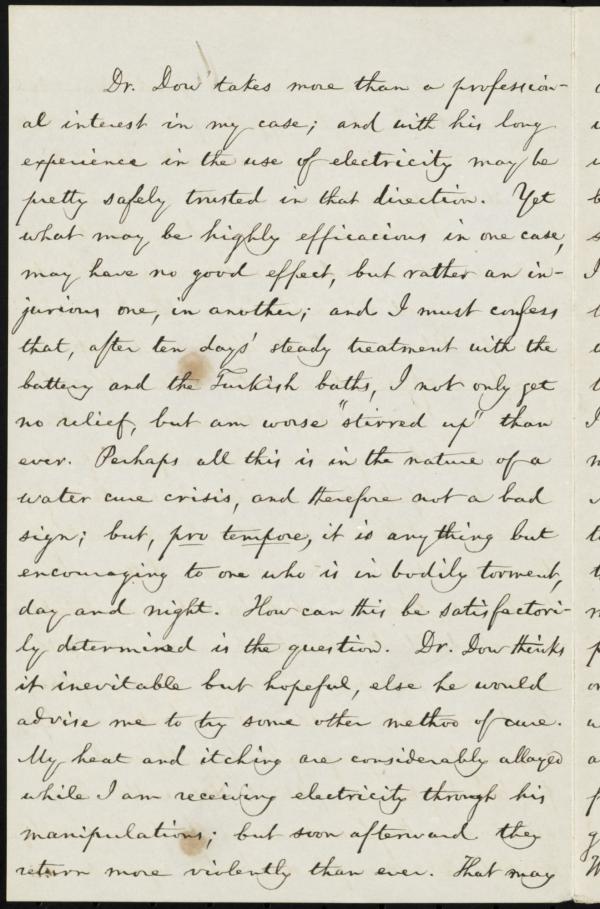 Dr. Dow takes more than a profession-
al interest in my case; and with his long
experience in the use of electricity may be
pretty safely trusted in that direction. Yet
what may be highly efficacious in one case,
may have no good effect, but rather an in-
jurious one, in another; and I must confess
that, after ten days' steady treatment with the
battery and the Turkish baths, I not only get
no relief, but am worse "stirred up" than
ever. Perhaps all this is in the nature of a
water cure crisis, and therefore not a bad
sign; but, pro tempore, it is anything but
encouraging to one who is in bodily torment,
day and night. How can this be satisfactori-
ly determined is the question. Dr. Dow thinks
it inevitable but hopeful, else he would
advise me to try some other method of cure.
My heat and itching are considerably allayed
while I am receiving electricity through his
manipulations; but soon afterward they
return more violently than ever. That may